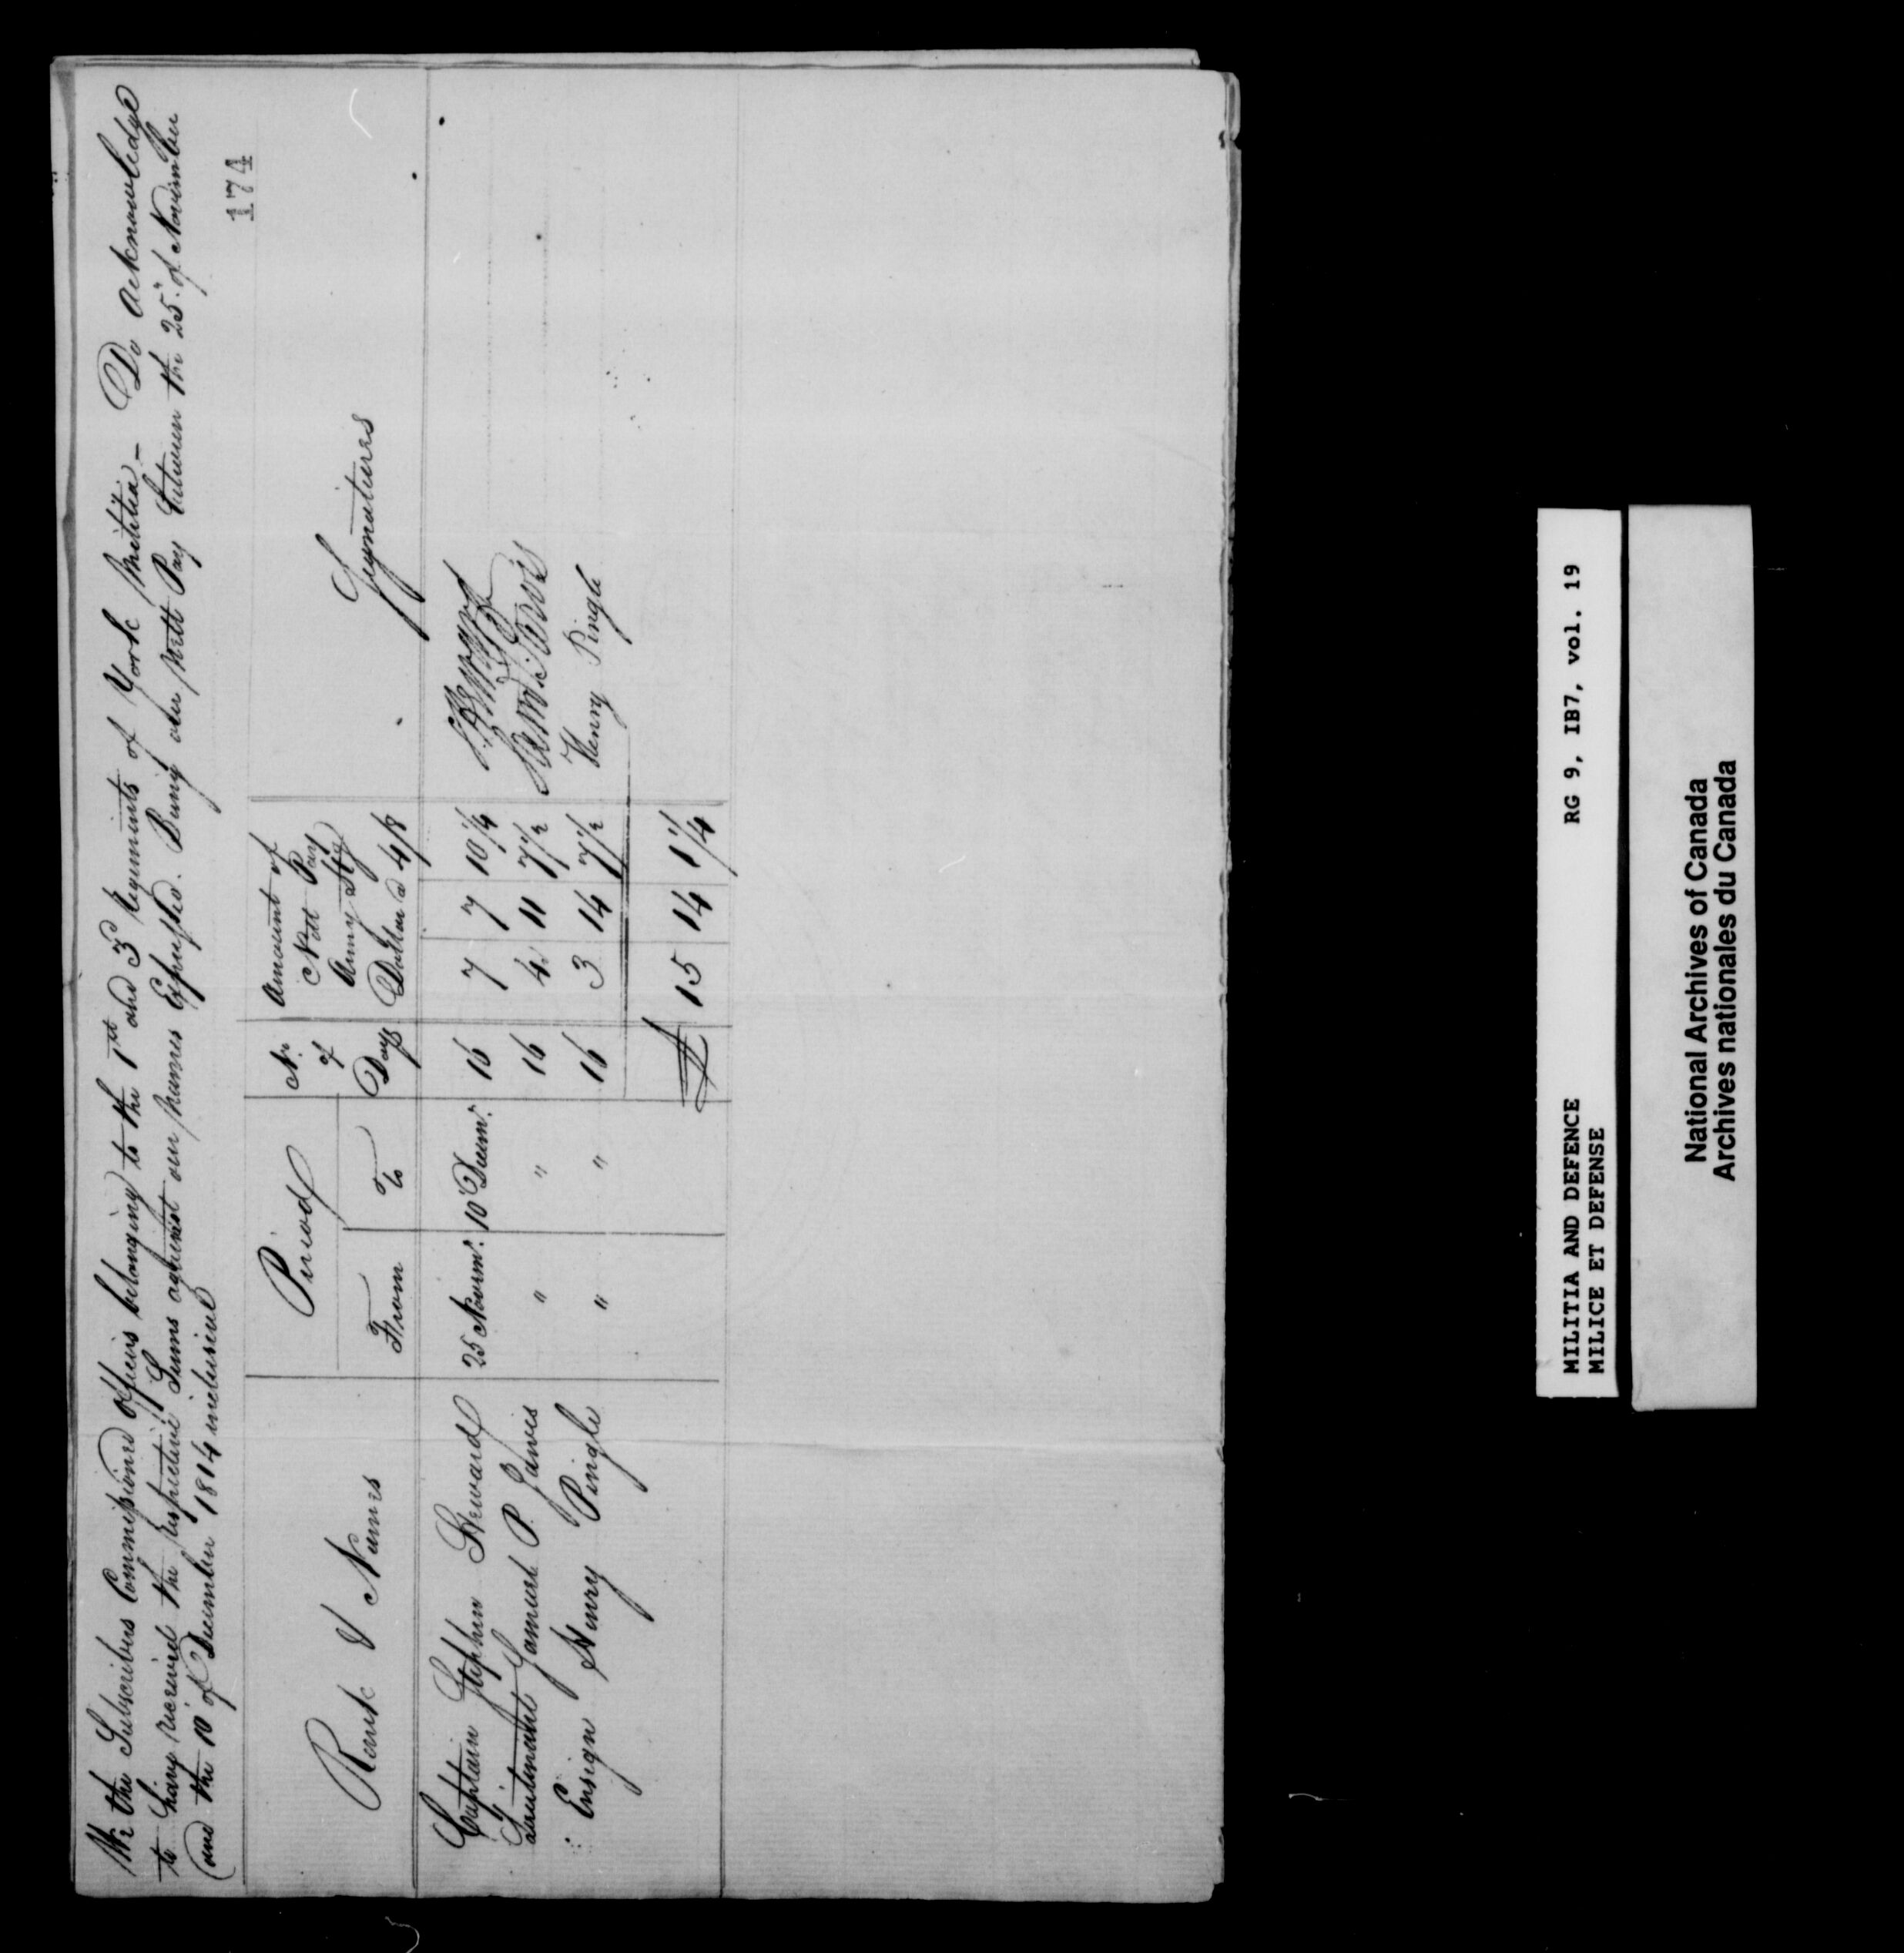 We the Subscribers Commissioned officers belonging to the 1st and 3rd Regiments of York Militia – Do acknowledge
to have received the respective Sums against our names Expressed. Being our Nett Pay between the 25" of November
and the 10 of December 1814 inclusive
174
Rank & Names Period Nr. of Days Amount of Nett Pay Army Stg Dollar @ 4/8 Signatures
From To
Captain Stephen Heward 25 Novemr. 10 Decemr. 16 7 7 10 1/4 S Heward
Lieutenant Samuel P. Jarvis " " 16 4 11 7 1/2 Jarvis
Ensign Henry Pingle " " 16 3 14 7 1/2 Henry Pingle
£ 15 14 1 1/4
MILITIA AND DEFENCE RG 9, IB7, vol. 19
MILICE ET DEFENSE
National Archives of Canada
Archives nationales du Canada